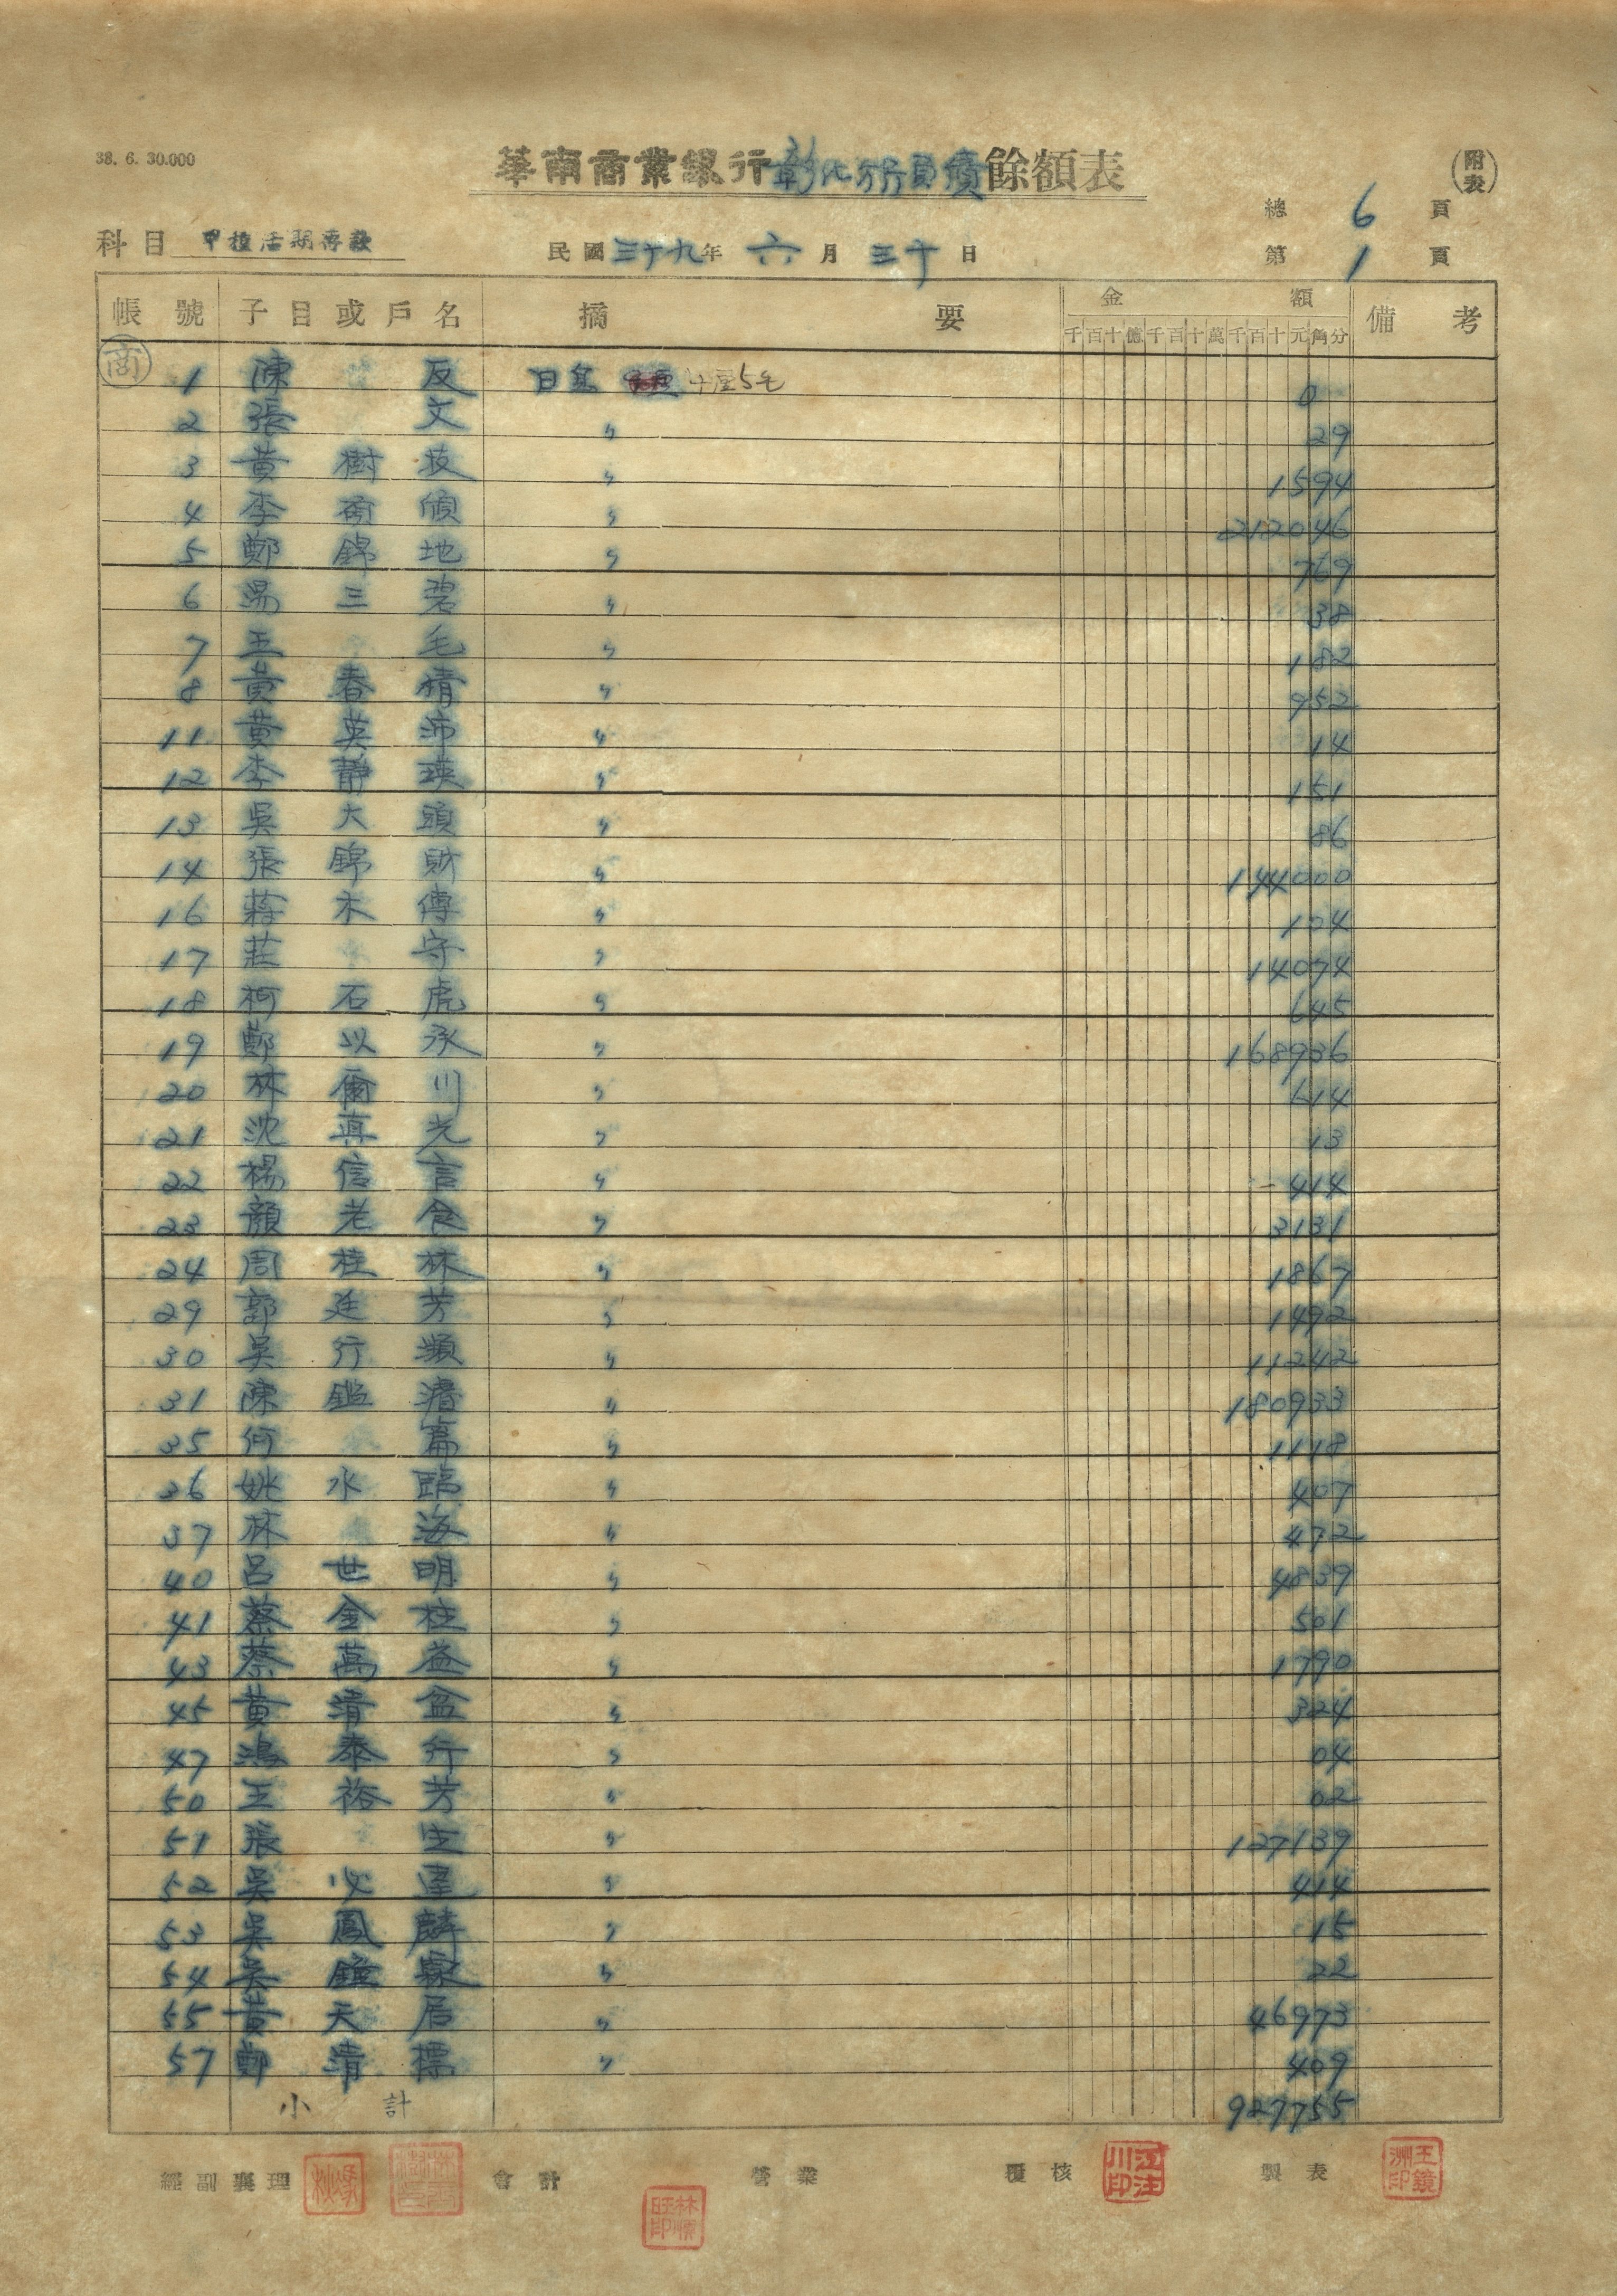 38. 6. 30.000
華南商業銀行彰化行員續餘額表
附表
總 6 頁
科目 甲種活期存款 民國三十九年 六月 三十日 第 1 頁
帳號 子目或戶名 摘要 金額 備考
千百十億千百十萬千百十元角分
商
1 陳 反 0
2 張 文 〃 29
3 黃樹 〃 1594
4 李 〃 212046
5 鄭錦地 〃 769
6 三碧 〃 38
7 王 毛 〃 182
8 黃春 〃 952
11 黃英沛 〃 14
12 李靜瑛 〃 151
13 吳大頭 〃 86
14 張錦財 〃 144000
16 蔣木傳 〃 104
17 莊 守 〃 14074
18 柯石虎 〃 645
19 鄭以承 〃 168936
20 林爾川 〃 614
21 沈真光 〃 13
22 楊信言 〃 414
23 顏老食 〃 3131
24 周桂林 〃 1867
29 郭廷芳 〃 1492
30 吳行瀨 〃 11242
31 陳鑑 〃 180933
35 何 〃 1118
36 姚水臨 〃 407
37 林 海 〃 472
40 呂世明 〃 4839
41 蔡金柱 〃 501
43 蔡萬益 〃 1790
45 黃清盆 〃 324
47 鴻泰行 〃 04
50 王裕芳 〃 02
51 張 〃 127139
52 吳 〃 414
53 吳鳳麟 〃 15
54 吳 〃 22
55 黃天居 〃 46973
57 鄭清標 〃 409
小計 927755
經副襄理 會計 營業 覆核 製表
江注川印
王鏡洲印